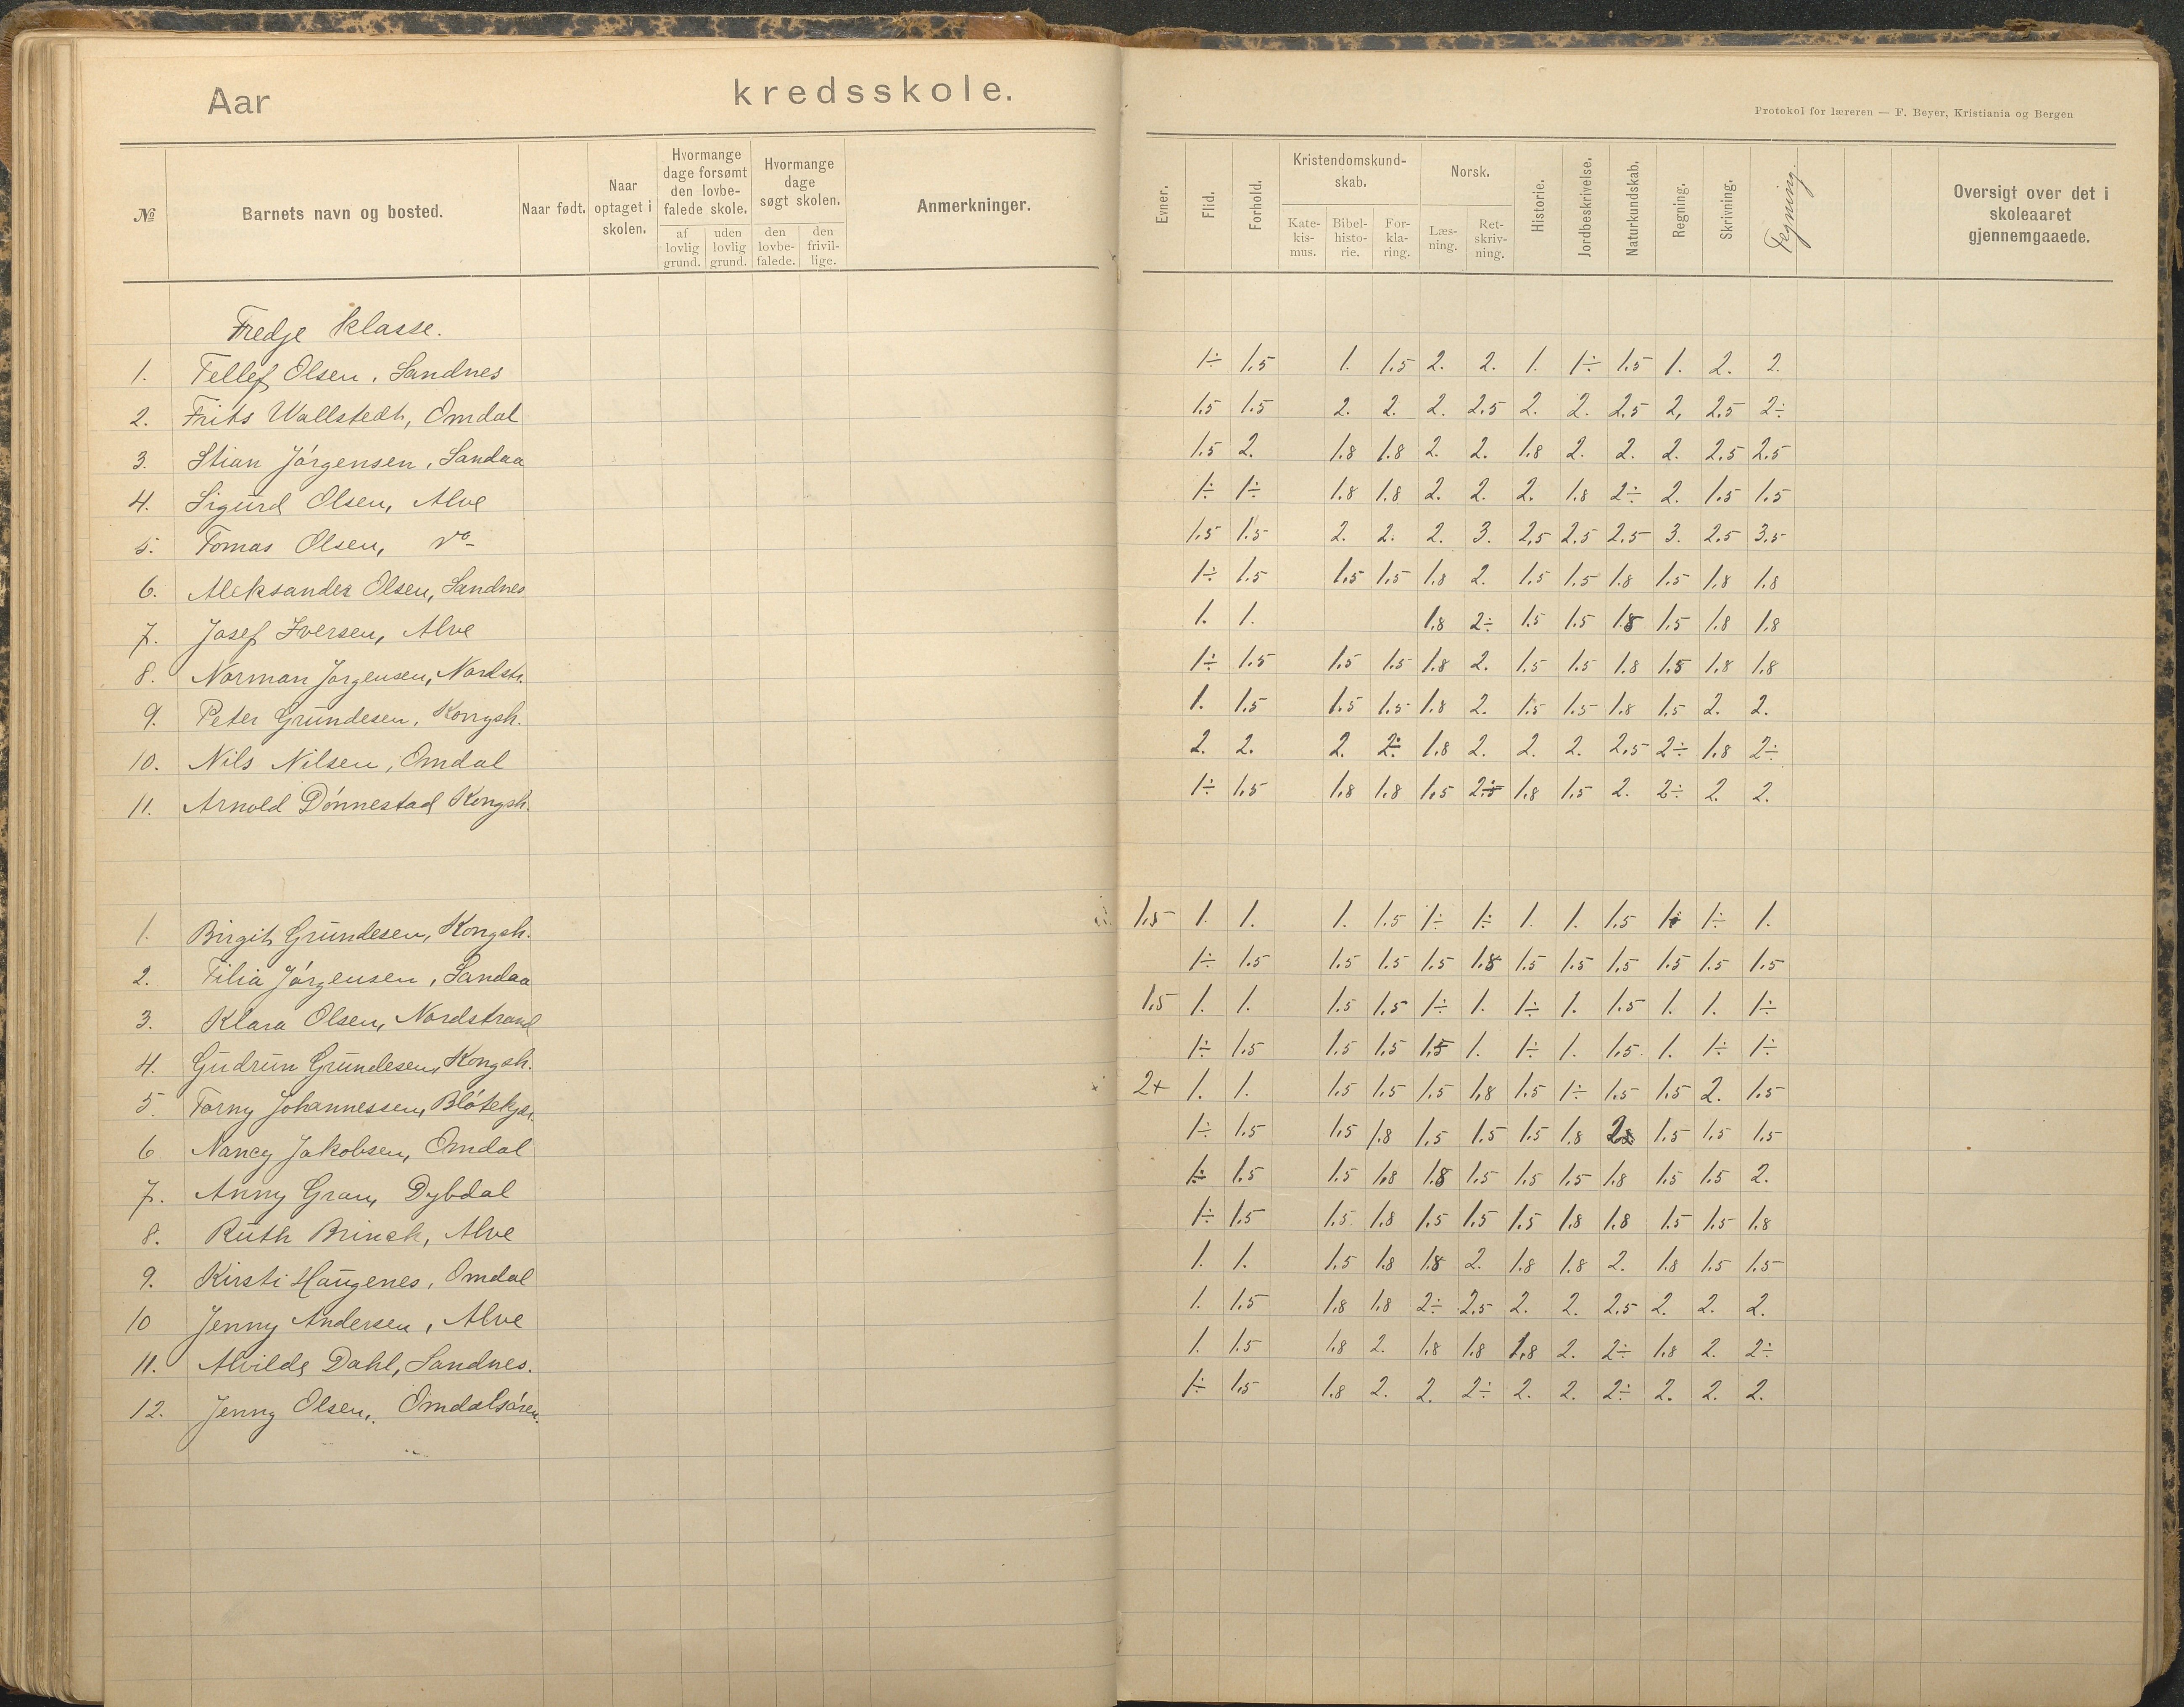 Aar kredsskole.
Protokol for læreren — F. Beyer, Kristiania og Bergen
№ Barnets navn og bosted. Naar født. Naar optaget i skolen. Hvormange dage forsømt den lovbefalede skole. af lovlig grund. uden lovlig grund. Hvormange dage søgt skolen. den lovbefalede. den frivillige. Anmerkninger. Evner. Flid. Forhold. Kristendomskundskab. Katekismus. Bibelhistorie. Forklaring. Norsk. Læsning. Retskrivning. Historie. Jordbeskrivelse. Naturkundskab. Regning. Skrivning. Tegning. Oversigt over det i skoleaaret gjennemgaaede.
Tredje klasse.
1. Tellef Olsen, Sandnes 1÷ 1.5 1. 1.5 2. 2. 1. 1÷ 1.5 1. 2. 2.
2. Frits Wallstedt, Omdal 1.5 1.5 2. 2. 2. 2.5 2. 2. 2.5 2, 2.5 2÷
3. Stian Jörgensen, Sandaa 1.5 2. 1.8 1.8 2. 2. 1.8 2. 2. 2. 2.5 2.5
4. Sigurd Olsen, Alve 1÷ 1÷ 1.8 1.8 2. 2. 2. 1.8 2÷ 2. 1.5 1.5
5. Tomas Olsen, 1.5 1.5 2. 2. 2. 3. 2,5 2.5 2.5 3. 2.5 3.5
6. Aleksander Olsen, Sandnes 1÷ 1.5 1.5 1.5 1.8 2. 1.5 1.5 1.8 1.5 1.8 1.8
7. Josef Iversen, Alve 1. 1. 1.8 2÷ 1.5 1.5 1.8 1.5 1.8 1.8
8. Norman Jörgensen, Nordstr. 1÷ 1.5 1.5 1.5 1.8 2. 1.5 1.5 1.8 1.5 1.8 1.8
9. Peter Grundesen, Kongsh. 1. 1.5 1.5 1.5 1.8 2. 1.5 1.5 1.8 1.5 2. 2.
10. Nils Nilsen, Omdal 2. 2. 2. 2÷ 1.8 2. 2. 2. 2.5 2÷ 1.8 2÷
11. Arnold Dönnestad Kongsh. 1÷ 1.5 1.8 1.8 1.5 2÷ 1.8 1.5 2. 2÷ 2. 2.
1. Birgit Grundesen, Kongsh. 1.5 1. 1. 1. 1.5 1÷ 1÷ 1. 1. 1.5 1÷ 1÷ 1.
2. Tilia Jörgensen, Sandaa 1÷ 1.5 1.5 1.5 1.5 1.8 1.5 1.5 1.5 1.5 1.5 1.5
3. Klara Olsen, Nordstrand 1.5 1. 1. 1.5 1.5 1÷ 1. 1÷ 1. 1.5 1. 1. 1÷
4. Gudrun Grundesen, Kongsh. 1÷ 1.5 1.5 1.5 1.5 1. 1÷ 1. 1.5 1. 1÷ 1÷
5. Torny Johannessen, Blötekjær. 2+ 1. 1. 1.5 1.5 1.5 1.8 1.5 1÷ 1.5 1.5 2. 1.5
6 Nancy Jakobsen, Omdal 1÷ 1.5 1.5 1.8 1.5 1.5 1.5 1.8 2. 1.5 1.5 1.5
7. Anny Gran, Dybdal 1÷ 1.5 1.5 1.8 1.8 1.5 1.5 1.5 1.8 1.5 1.5 2.
8. Ruth Brinck, Alve 1÷ 1.5 1.5 1.8 1.5 1.5 1.5 1.8 1.8 1.5 1.5 1.8
9. Kirsti Haugenes, Omdal 1. 1. 1.5 1.8 1.8 2. 1.8 1.8 2. 1.8 1.5 1.5
10 Jenny Andersen, Alve 1. 1.5 1.8 1.8 2÷ 2.5 2. 2. 2.5 2. 2. 2.
11. Alvilde Dahl, Sandnes. 1. 1.5 1.8 2. 1.8 1.8 1.8 2. 2÷ 1.8 2. 2÷
12. Jenny Olsen, Omdalsören. 1÷ 1.5 1.8 2. 2. 2÷ 2. 2. 2÷ 2. 2. 2.